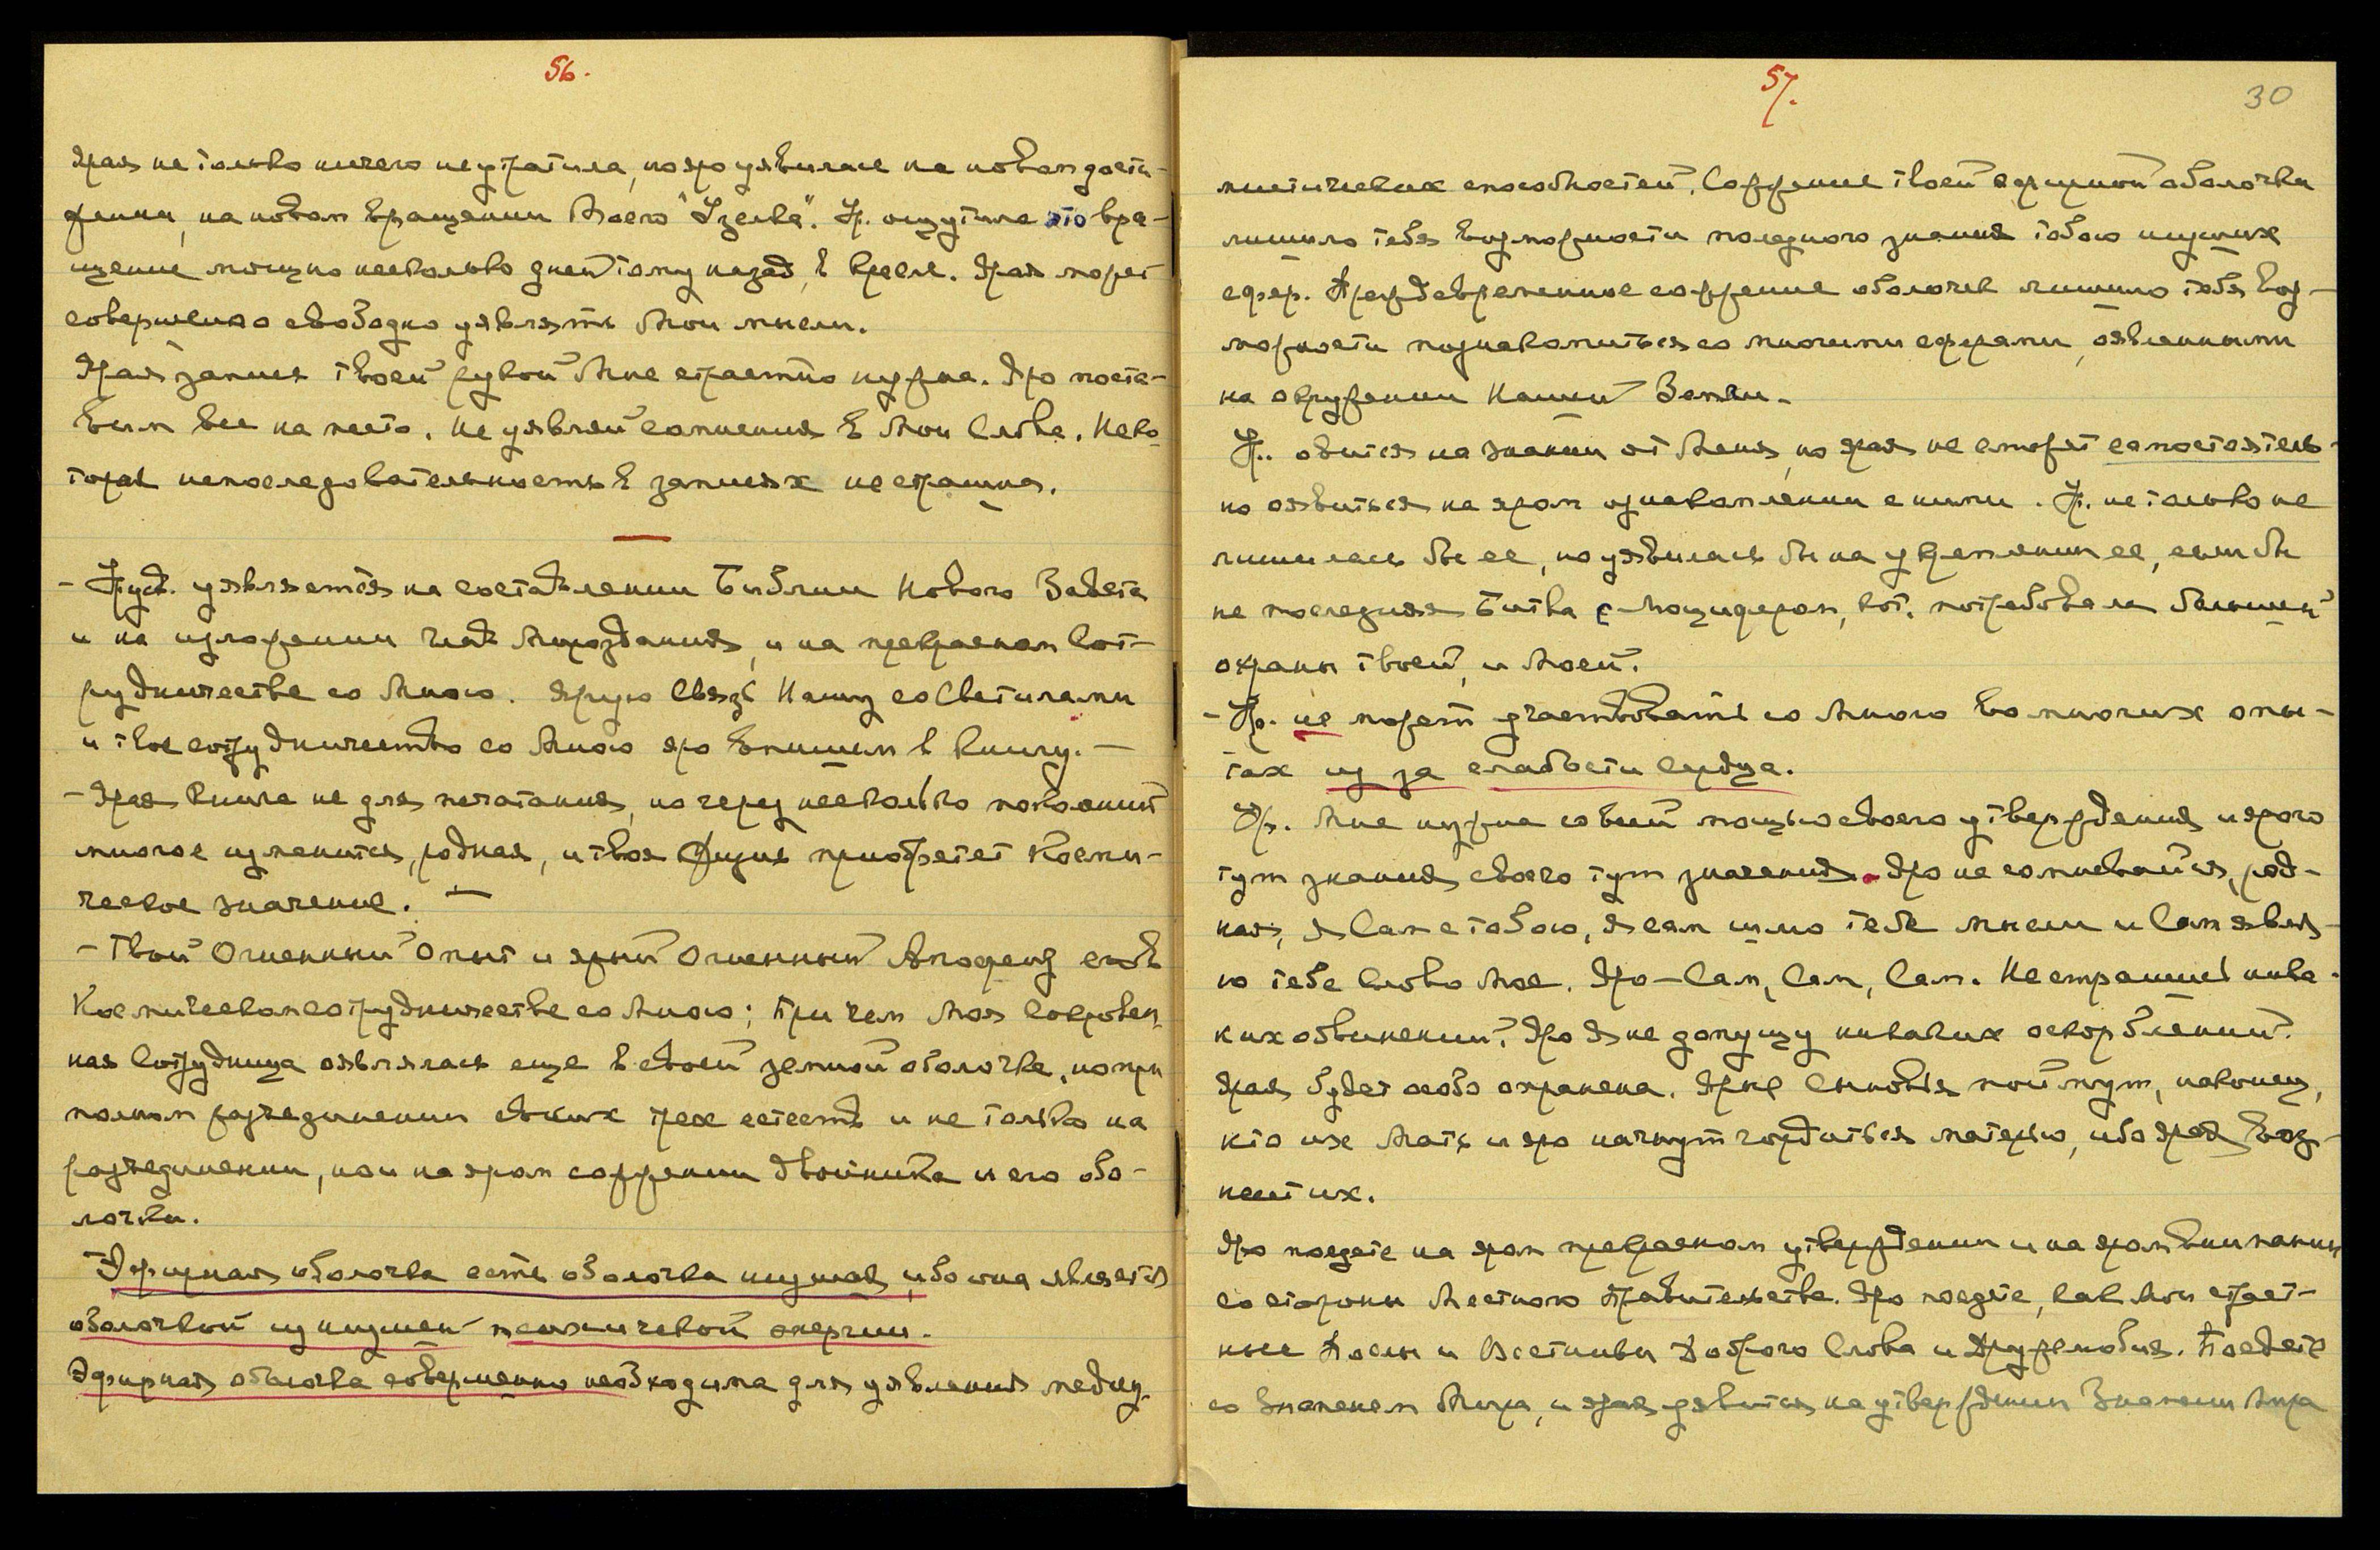 56.
Ярая не только ничего не утратила, но яро уявилась на новом дости-
жении, на новом вращении Моего "Узелка". Ур. ощутила это вра-
щение мощно несколько дней тому назад, в кресле. Ярая может
совершенно свободно уявлять Мои мысли.
Ярая запись твоей рукой Мне страстно нужна. Яро поста-
вим все на место. Не уявляй сомнения в Мои Слова. Неко-
торая непоследовательность в записях не страшна.
- Урув. уявляется на составлении Библии Нового Завета
и на изложении Чаш Мироздания, и на прекрасном Сот-
рудничестве со Мною. Ярую Связь Нашу со Светилами
и твое сотрудничество со Мною яро впишем в книгу. -
- Ярая книга не для печатания, но через несколько поколений
многое изменится, родная, и твоя Физия приобретет Косми-
ческое значение. -
- Твой Огненный Опыт и ярый Огненный Апофеоз есть
Космическом сотрудничестве со Мною; При чем Моя Сокровен-
ная Сотрудница оявлялась еще в своей земной оболочке, но при
полном разъединении своих трех естеств и не только на
разъединении, но и на яром сожжении двойника и его обо-
лочки.
Эфирная оболочка есть оболочка низшая, ибо она является
оболочкой из низшей психической энергии.
Эфирная оболочка совершенно необходима для уявления медиу-
57.
30
мистических способностей. Сожжение твоей эфирной оболочки
лишило тебя возможности полезного знания тобою низших
сфер. Преждевременное сожжение оболочек лишило тебя воз-
можности познакомиться со многими сферами, оявленными
на окружении Нашей Земли.
Ур. овится на знании от Меня, но ярая не сможет самостоятель-
но оявиться на яром ознакомлении с ними. Ур. не только не
лишилась бы ее, но уявилась бы на укреплении ее, если бы
не последняя Битва с Люцифером, кот. потребовала большей
охраны твоей, и Моей.
- Ур. не может участвовать со Мною во многих опы-
тах из за слабости сердца.
Ур. Мне нужна со всей мощью своего утверждения и ярого
тут знания своего тут значения. Яро не сомневайся, род-
ная, Я Сам с тобою, Я сам шлю тебе мысли и Сам являю-
ю тебе Слово Мое. Яро - Сам, Сам, Сам. Не страшись ника-
ких обвинений. Яро Я не допущу никаких оскорблений.
Ярая будет особо охранена. Ярые Сыновья поймут, наконец,
кто их Мать и яро начнут гордиться матерью, ибо ярая Воз-
несет их.
Яро поедете на яром прекрасном утверждении и на яром внимании
со стороны Местного Правительства. Яро поедете, как Мои страст-
ные Послы и Вестники Доброго Слова и Дружелюбия. Поедете
со Знаменем Мира, и ярая уявится на утверждении Знамени Мира